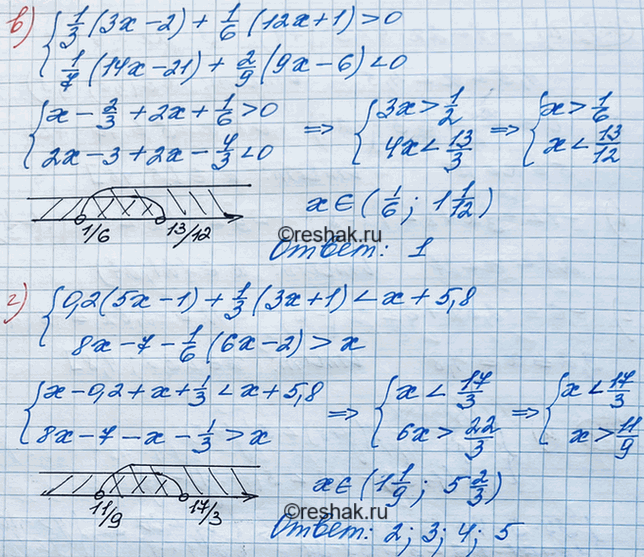 в) { 1/3 (3x-2) + 1/6 (12x+1) > 0
1/7 (14x-21) + 2/9 (9x-6) < 0
{ x - 2/3 + 2x + 1/6 > 0 => { 3x > 1/2 => { x > 1/6
2x - 3 + 2x - 4/3 < 0 4x < 13/3 x < 13/12
1/6 13/12
x ∈ (1/6 ; 1 1/12)
©reshak.ru
Ответ: 1
г) { 0,2(5x-1) + 1/3 (3x+1) < x + 5,8
8x - 7 - 1/6 (6x-2) > x
{ x - 0,2 + x + 1/3 < x + 5,8 => { x < 17/3 => { x < 17/3
8x - 7 - x - 1/3 > x 6x > 22/3 x > 11/9
11/9 17/3
x ∈ (1 1/9 ; 5 2/3)
©reshak.ru
Ответ: 2; 3; 4; 5